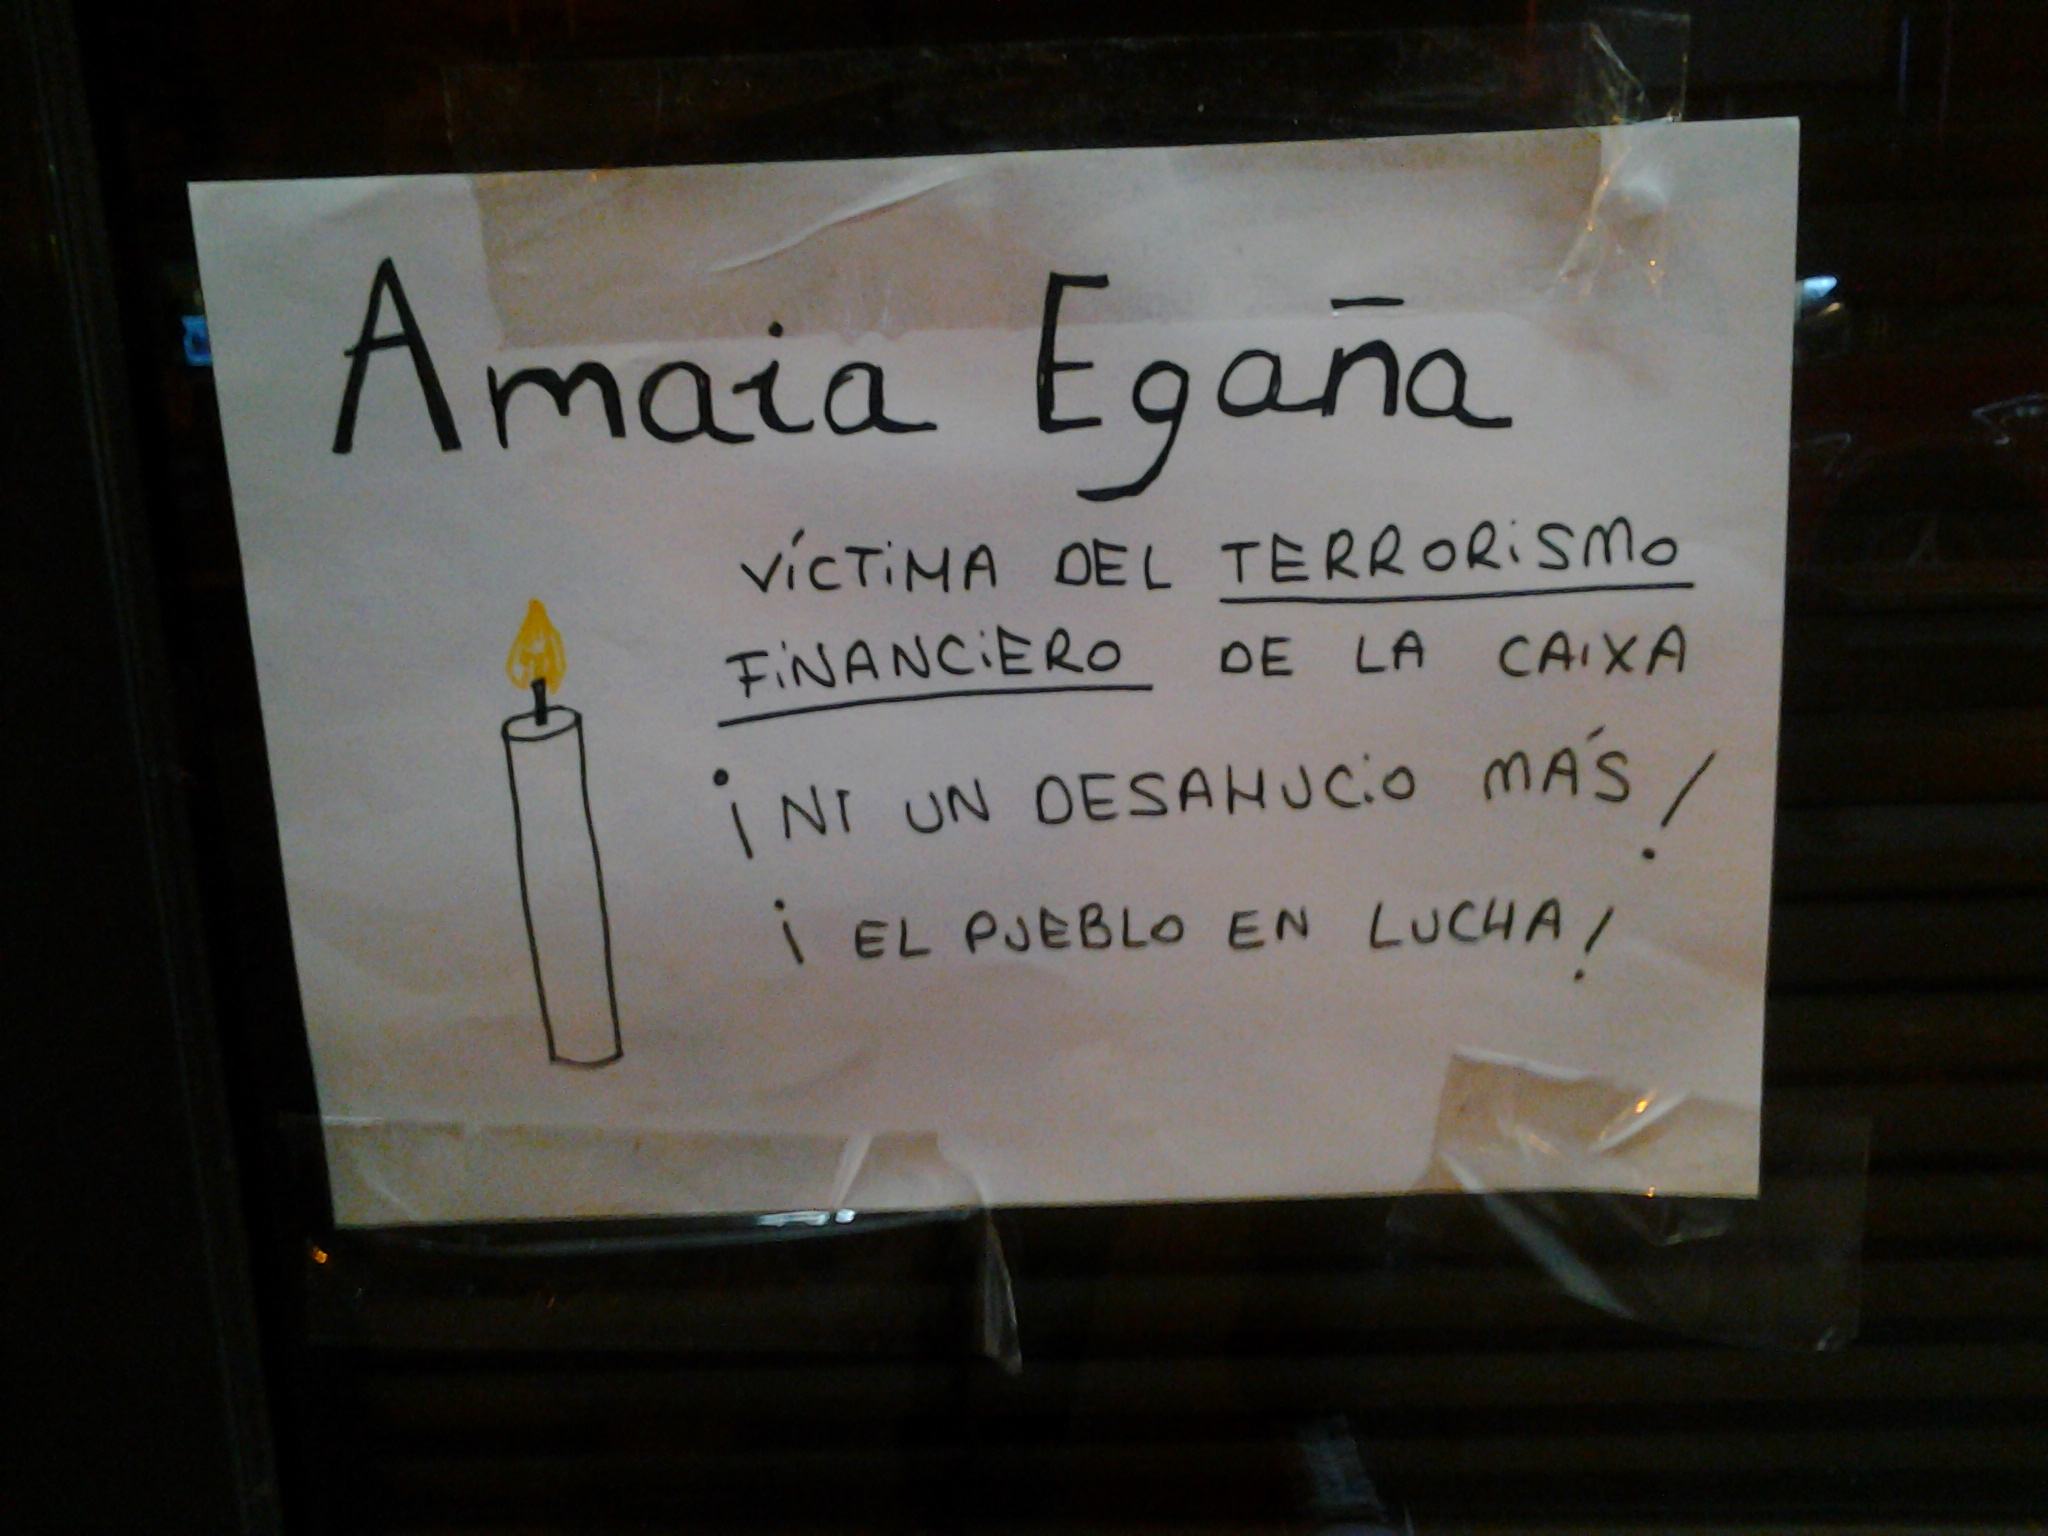 Amaia Egaña
VÍCTIMA DEL TERRORISMO
FINANCIERO DE LA CAIXA
¡NI UN DESAHUCIO MÁS!
¡EL PUEBLO EN LUCHA!